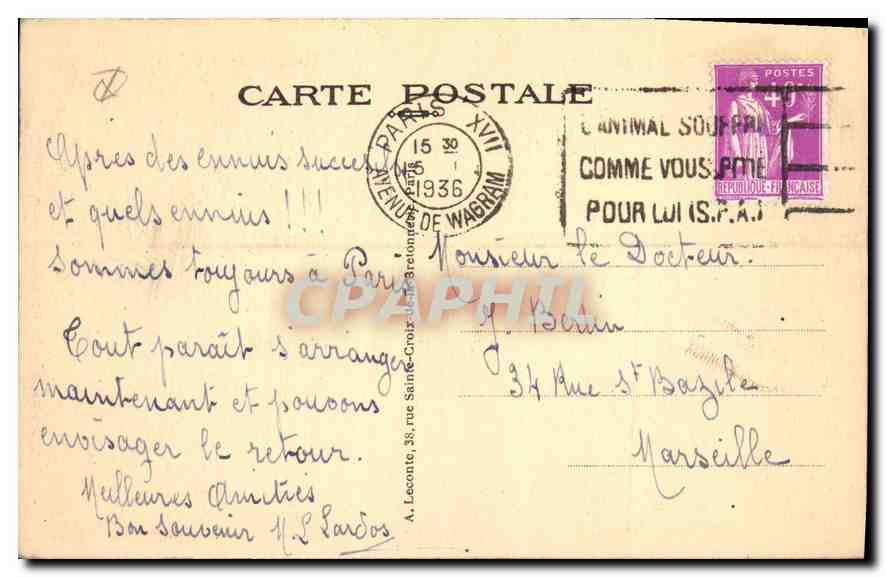 CARTE POSTALE
PARIS XVII
15 30
5 1
1936
AVENUE DE WAGRAM
L'ANIMAL SOUFFRE
COMME VOUS. PITIE
POUR LUI (S.P.A.)
POSTES
40
REPUBLIQUE-FRANCAISE
Apres des ennuis successifs
et quels ennuis !!!
Sommes toujours à Paris
Tout paraît s'arranger
maintenant et pouvons
envisager le retour.
Meilleures Amitiés
Bon Souvenir M L
A. Leconte, 38, rue Sainte-Croix-de-la-Bretonnerie, Paris
Monsieur le Docteur.
J.
34 Rue St Bazile
Marseille
CPAPHIL